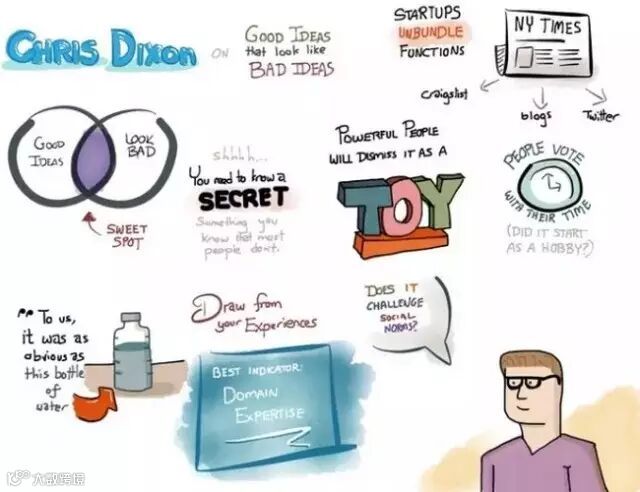 CHRIS DIXON
ON
GOOD IDEAS
that look like
BAD IDEAS
STARTUPS
UNBUNDLE
FUNCTIONS
NY TIMES
craigslist
blogs
Twitter
GOOD
IDEAS
LOOK
BAD
SWEET
SPOT
shhhh...
You need to know a
SECRET
Something you
know that most
people don't.
POWERFUL PEOPLE
WILL DISMISS IT AS A
TOY
PEOPLE VOTE
WITH THEIR TIME
(DID IT START
AS A HOBBY?)
"To us,
it was as
obvious as
this bottle
of
water
Draw from
your Experiences
BEST INDICATOR:
DOMAIN
EXPERTISE
DOES IT
CHALLENGE
SOCIAL
NORMS?
大数跨境